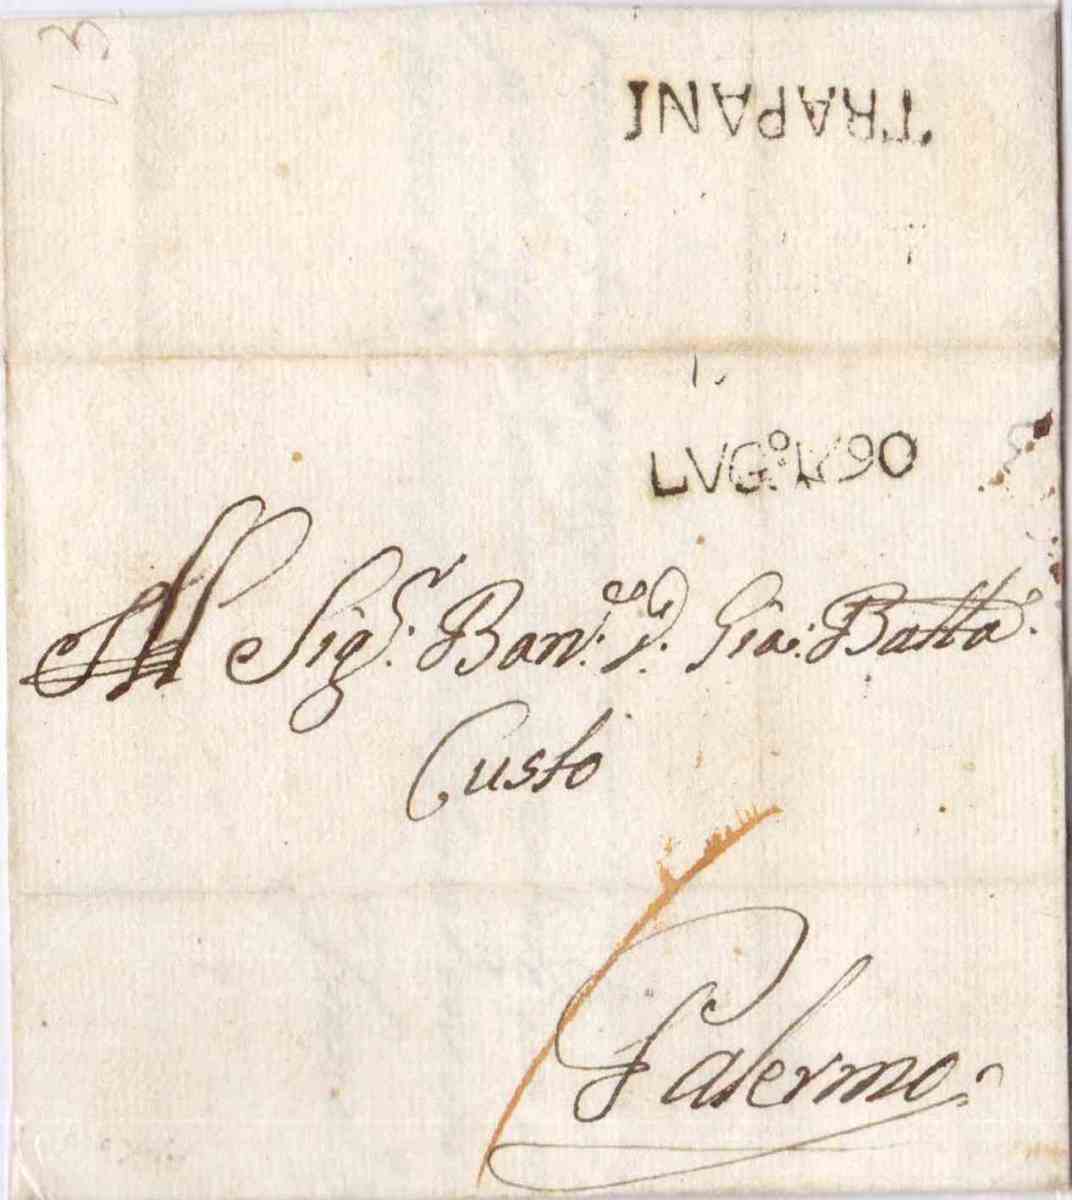 13
TRAPANI
LVG.º 1790
All Sig.r Bar.ne D. Gio: Batta
Custo
Palermo